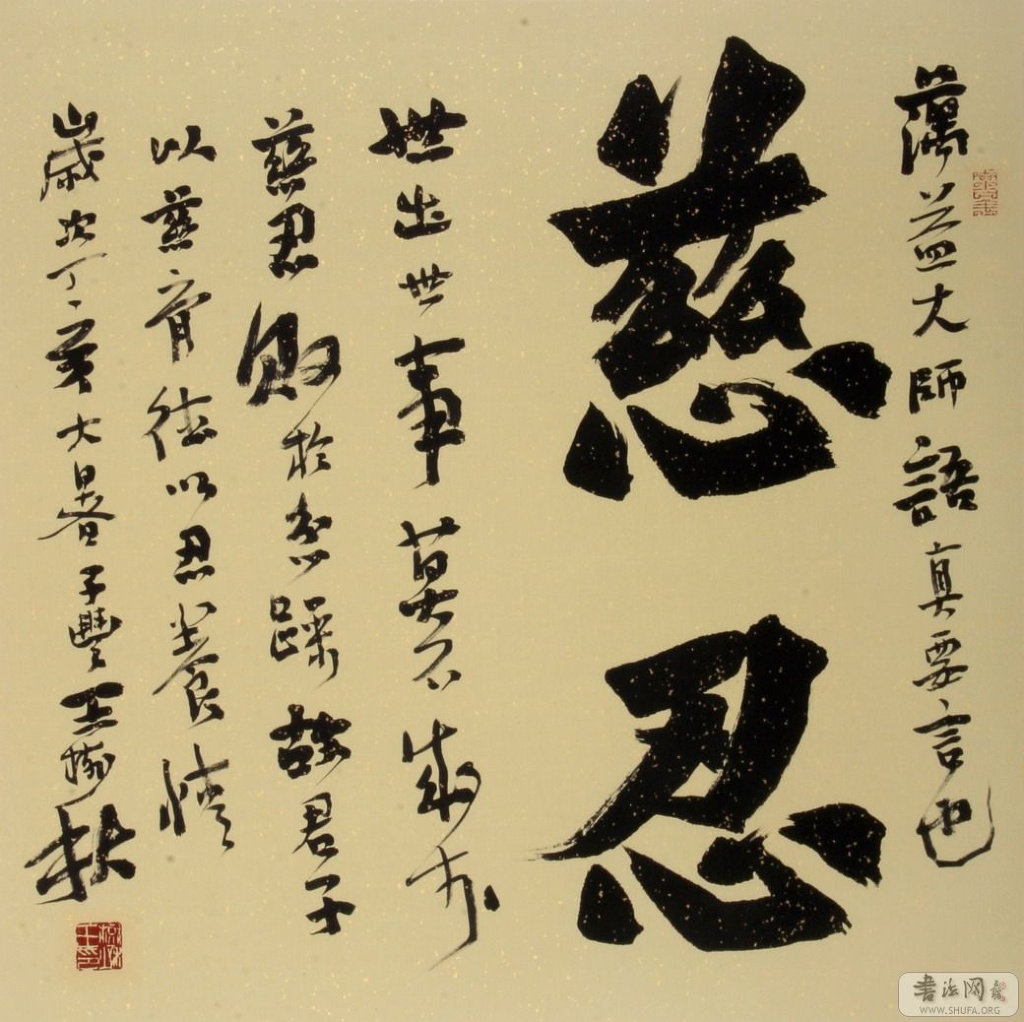 蕅益大師語真要言也
慈忍
世出世事莫不成於
慈忍敗於忿躁故君子
以慈育德以忍養情
歲次丁亥大暑子豐王樹秋
書法网
WWW.SHUFA.ORG